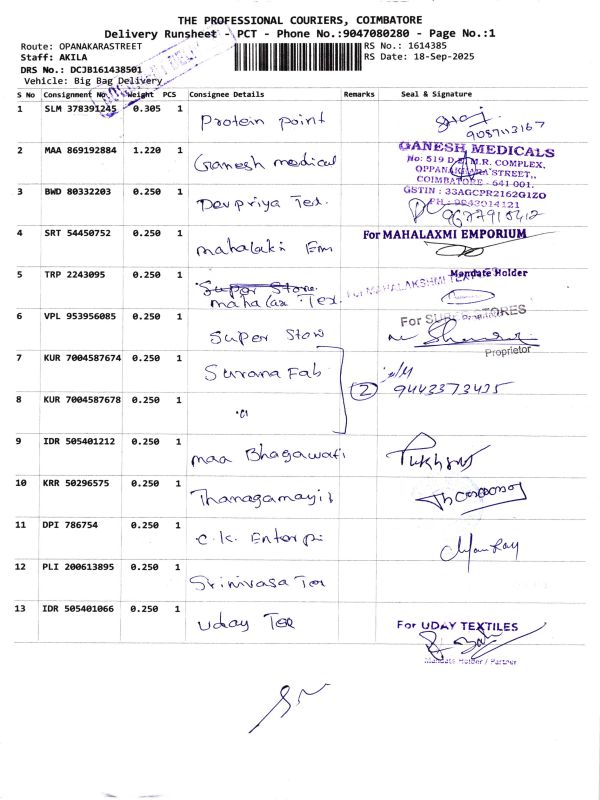 THE PROFESSIONAL COURIERS, COIMBATORE
Delivery Runsheet - PCT - Phone No.:9047080280 - Page No.:1
Route: OPANAKARASTREET
RS No.: 1614385
Staff: AKILA
RS Date: 18-Sep-2025
DRS No.: DCJB161438501
Vehicle: Big Bag Delivery
S No Consignment No Weight PCS Consignee Details Remarks Seal & Signature
1 SLM 378391245 0.305 1 Protein point
9087113167
2 MAA 869192884 1.220 1 Ganesh medical
GANESH MEDICALS
No: 519 D.E.M.R. COMPLEX,
OPPANAKARA STREET,,
COIMBATORE - 641 001.
GSTIN : 33AGCPR2162G1ZO
PH : 9843014121
3 BWD 80332203 0.250 1 Devpriya Tex.
9677910412
4 SRT 54450752 0.250 1 mahalaki Em
For MAHALAXMI EMPORIUM
Mandate Holder
5 TRP 2243095 0.250 1 Super Store.
mahalax Tex.
6 VPL 953956085 0.250 1 Super Stow
For SUPER STORES
Proprietor
7 KUR 7004587674 0.250 1 Surana Fab
2 9443373435
8 KUR 7004587678 0.250 1
9 IDR 505401212 0.250 1 maa Bhagawati
10 KRR 50296575 0.250 1 Thanagamayil
11 DPI 786754 0.250 1 C.K. Enterpi
12 PLI 200613895 0.250 1 Srinivasa Tex
13 IDR 505401066 0.250 1 Uday Tex
For UDAY TEXTILES
Mandate Holder / Partner